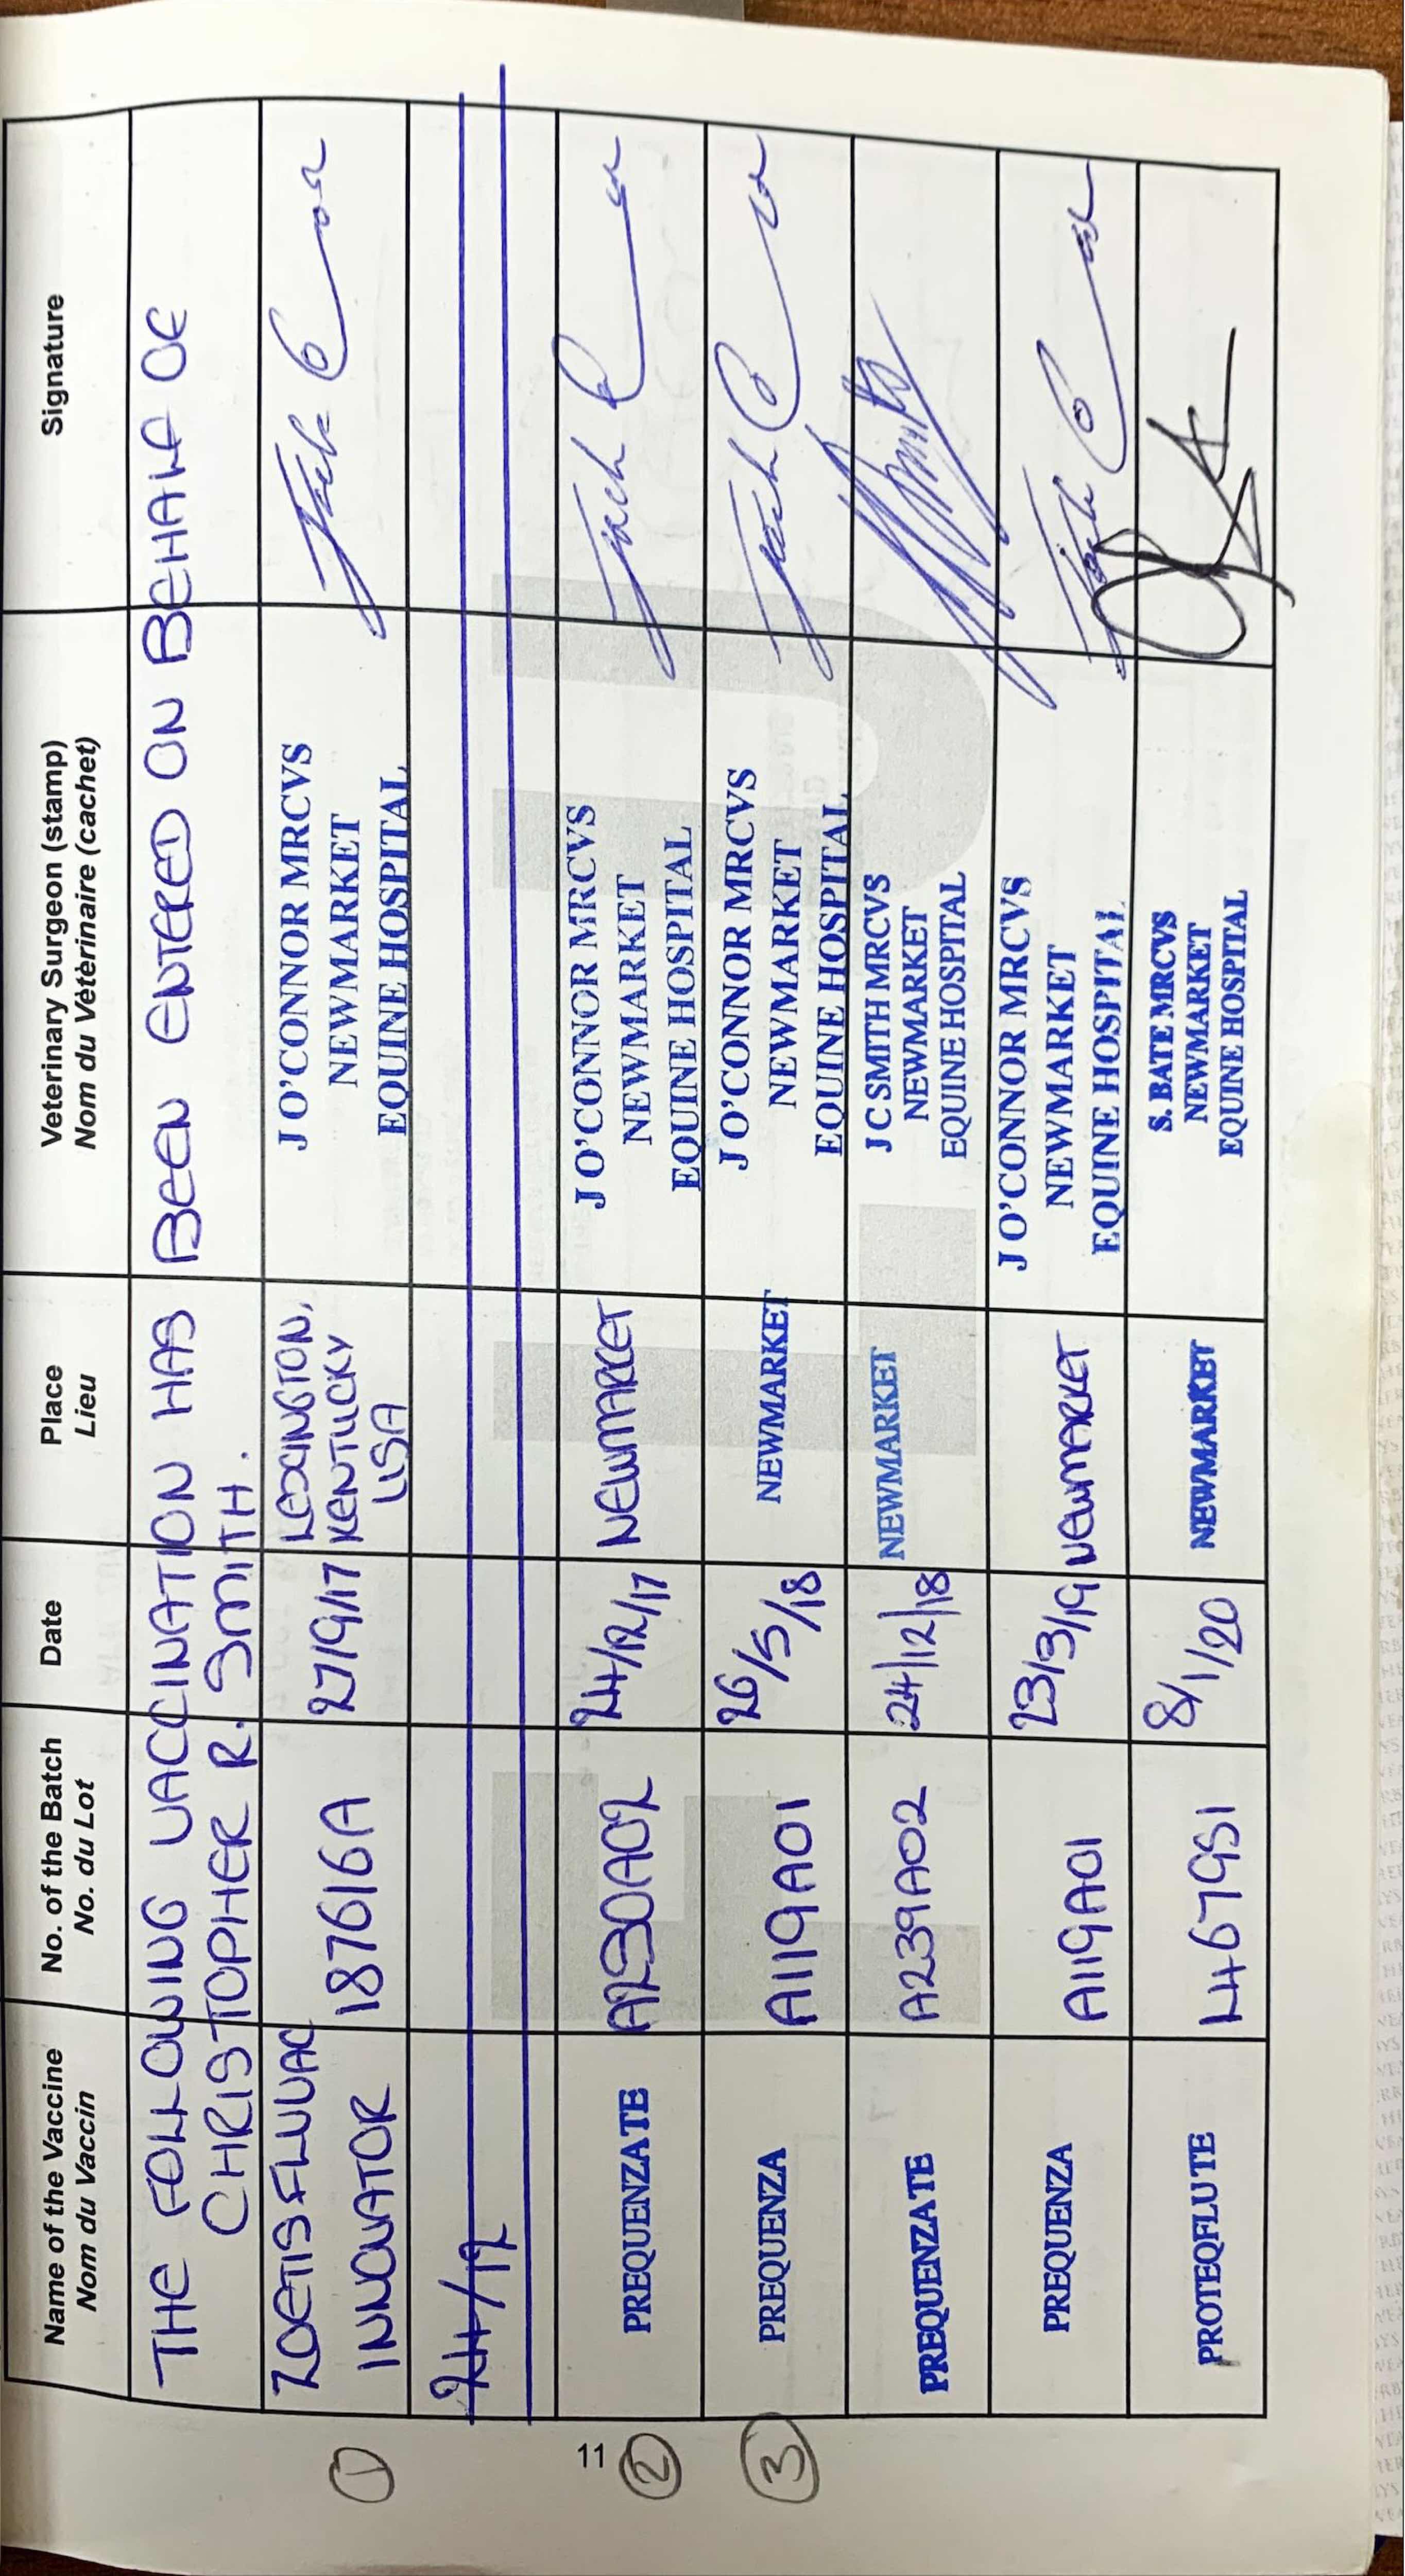 Name of the Vaccine
Nom du Vaccin
No. of the Batch
No. du Lot
Date
Place
Lieu
Veterinary Surgeon (stamp)
Nom du Vètèrinaire (cachet)
Signature
THE FOLLOWING VACCINATION HAS BEEN ENTERED ON BEHALF OF
CHRISTOPHER R. SMITH.
ZOETIS FLUVAC
INNOVATOR
187616A
27/9/17
LEXINGTON,
KENTUCKY
USA
J O'CONNOR MRCVS
NEWMARKET
EQUINE HOSPITAL
1
24/12
PREQUENZA TE
A230A02
24/12/17
NEWMARKET
J O'CONNOR MRCVS
NEWMARKET
EQUINE HOSPITAL
11
2
PREQUENZA
A119A01
26/5/18
NEWMARKET
J O'CONNOR MRCVS
NEWMARKET
EQUINE HOSPITAL
3
PREQUENZA TE
A239A02
24/12/18
NEWMARKET
J C SMITH MRCVS
NEWMARKET
EQUINE HOSPITAL
PREQUENZA
A119A01
23/3/19
NEWMARKET
J O'CONNOR MRCVS
NEWMARKET
EQUINE HOSPITAL
PROTEQFLU TE
L467951
8/1/20
NEWMARKET
S. BATE MRCVS
NEWMARKET
EQUINE HOSPITAL